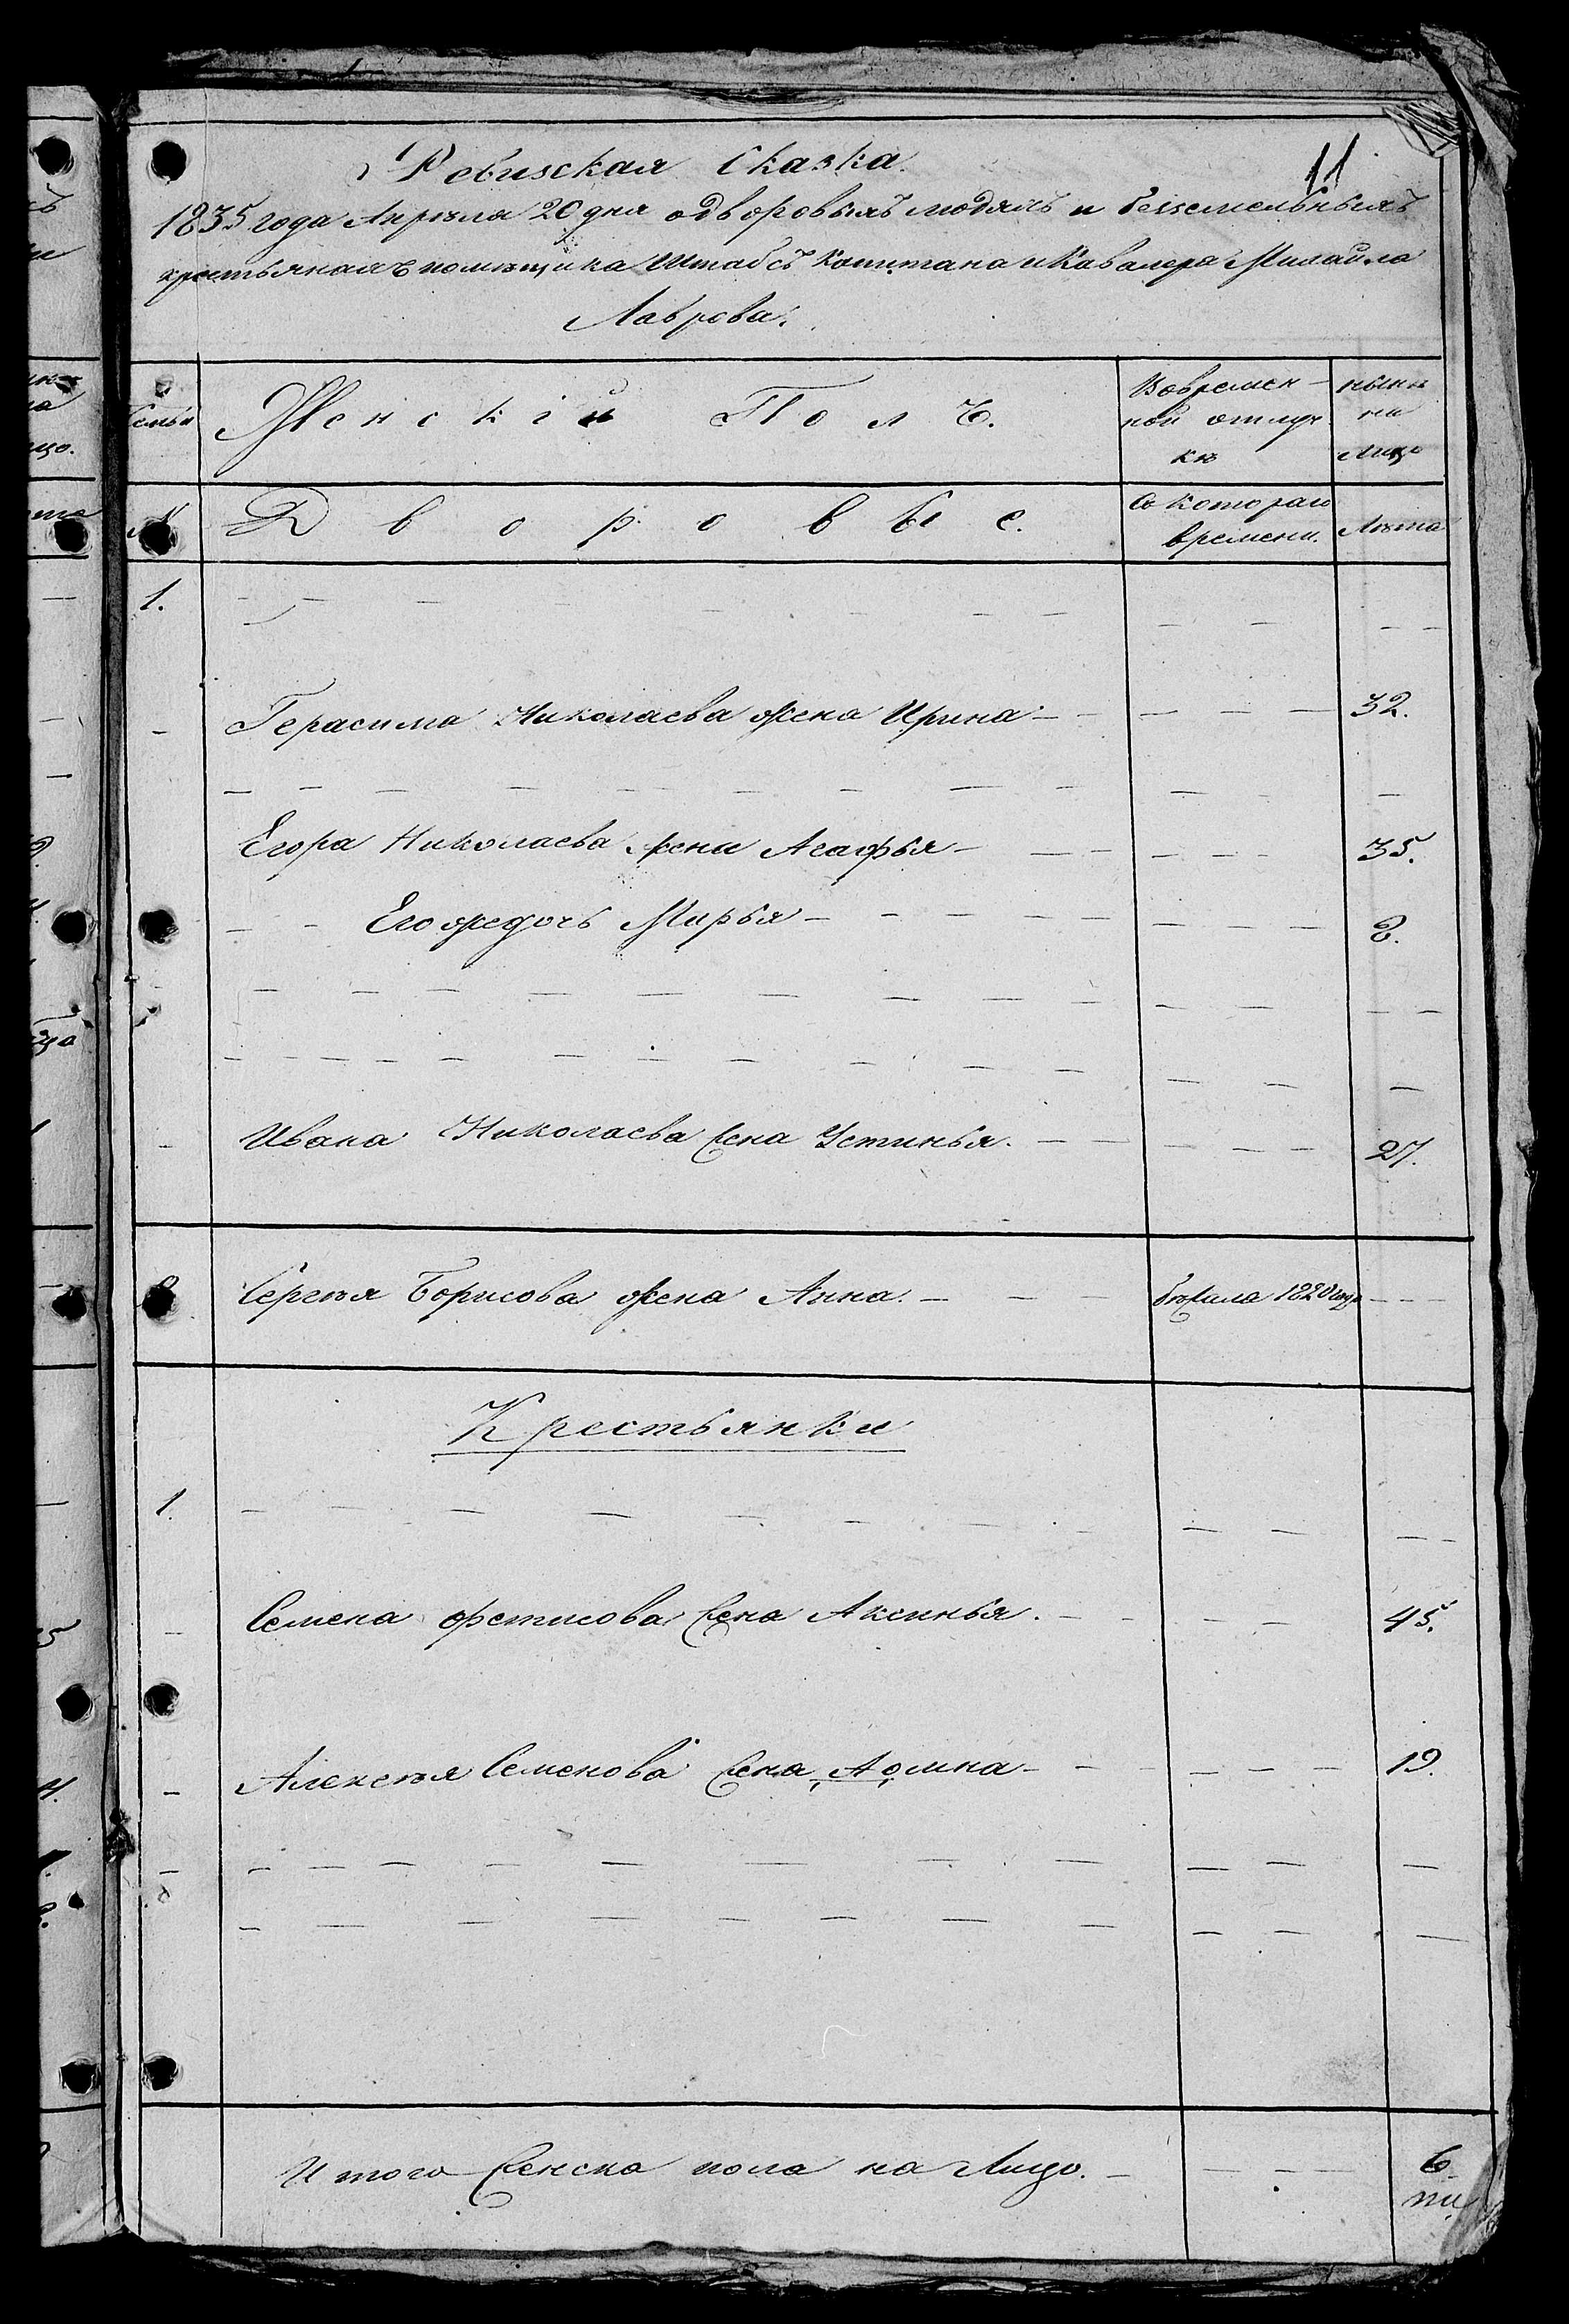 11
Ревиская Сказка.
1835 года Апреля 20 дня одворовыхъ людяхъ и безземельныхъ
крестьянахъ помѣщика Штабсъ Капитана и Кавалера Михайла
Лаврова.
Семьи
Женскій Полъ.
Вовремен-
ной отлуч
кѣ
нынѣ
на
Лицо
№
Дворовые.
Съ котораго
времени.
Лѣта
1.
Герасима Николаева жена Ирина 32.
Егора Николаева жена Агафья 35.
Его же дочь Марья 2.
Ивана Николаева жена Устинья. 27.
Сергѣя Борисова жена Анна. бѣжала 1820 года
Крестьянки
1.
Семена Фетисова жена Аксинья. 45.
Алексѣя Семенова жена Домна 19.
Итого женска пола на Лицо. 6